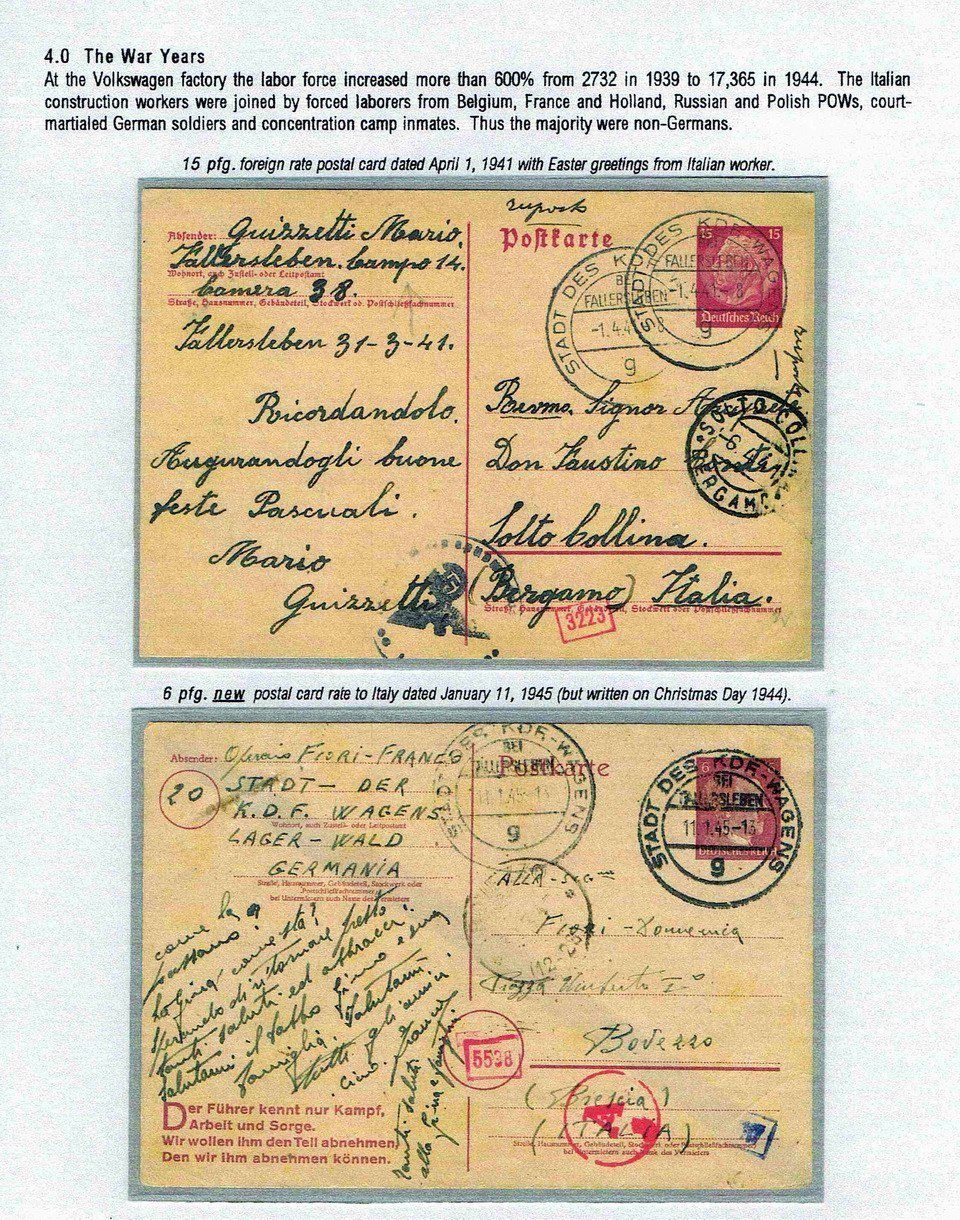 4.0 The War Years
At the Volkswagen factory the labor force increased more than 600% from 2732 in 1939 to 17,365 in 1944. The Italian
construction workers were joined by forced laborers from Belgium, France and Holland, Russian and Polish POWs, court-
martialed German soldiers and concentration camp inmates. Thus the majority were non-Germans.
15 pfg. foreign rate postal card dated April 1, 1941 with Easter greetings from Italian worker.
Absender: Guizzetti Mario.
Fallersleben. Campo 14.
Wohnort, auch Zustell- oder Leitpostamt
Camera 38.
Straße, Hausnummer, Gebäudeteil, Stockwerk od. Postschließfachnummer
Fallersleben 31-3-41.
Ricordandolo.
Augurandogli buone
feste Pascuali.
Mario
Guizzetti
Postkarte
STADT DES KDF-WAG
BEI
FALLERSLEBEN
-1.4.41.-8
g
STADT DES KD
BEI
FALLERSLEBEN
-1.4.41 8
g
15 15
Deutsches Reich
Revmo. Signor
Don Faustino
Solto Collina.
(Bergamo) Italia.
Straße, Hausnummer, Gebäudeteil, Stockwerk oder Postschließfachnummer
SOLTO COLLINA
BERGAMO
3223
6 pfg. new postal card rate to Italy dated January 11, 1945 (but written on Christmas Day 1944).
Absender: Operaio FIORI-FRANCO
20
STADT- DER
K.D.F. WAGENS
Wohnort, auch Zustell- oder Leitpostamt
LAGER-WALD
GERMANIA
Straße, Hausnummer, Gebäudeteil, Stockwerk oder
Postschließfachnummer
bei Untermietern auch Name des Vermieters
come la
passano?
sperando di ritornare presto
tanti saluti ed abbracci.
salutami il
famiglia.
tutti gli amici
tanti saluti
alla
Der Führer kennt nur Kampf,
Arbeit und Sorge.
Wir wollen ihm den Teil abnehmen,
Den wir ihm abnehmen können.
Postkarte
DES KDF-WAGENS
BEI
FALLERSLEBEN
11.1.45-13
g
STADT DES KDF-WAGENS
BEI
FALLERSLEBEN
11.1.45-13
g
6
DEUTSCHES REICH
ALLA-SIG
Fiori-Domenica
Piazza Umberto I°
Bovezzo
(Brescia)
(ITALIA)
Straße, Hausnummer, Gebäudeteil, Stockwerk oder Postschließfachnummer
bei Untermietern auch Name des Vermieters
5538
A